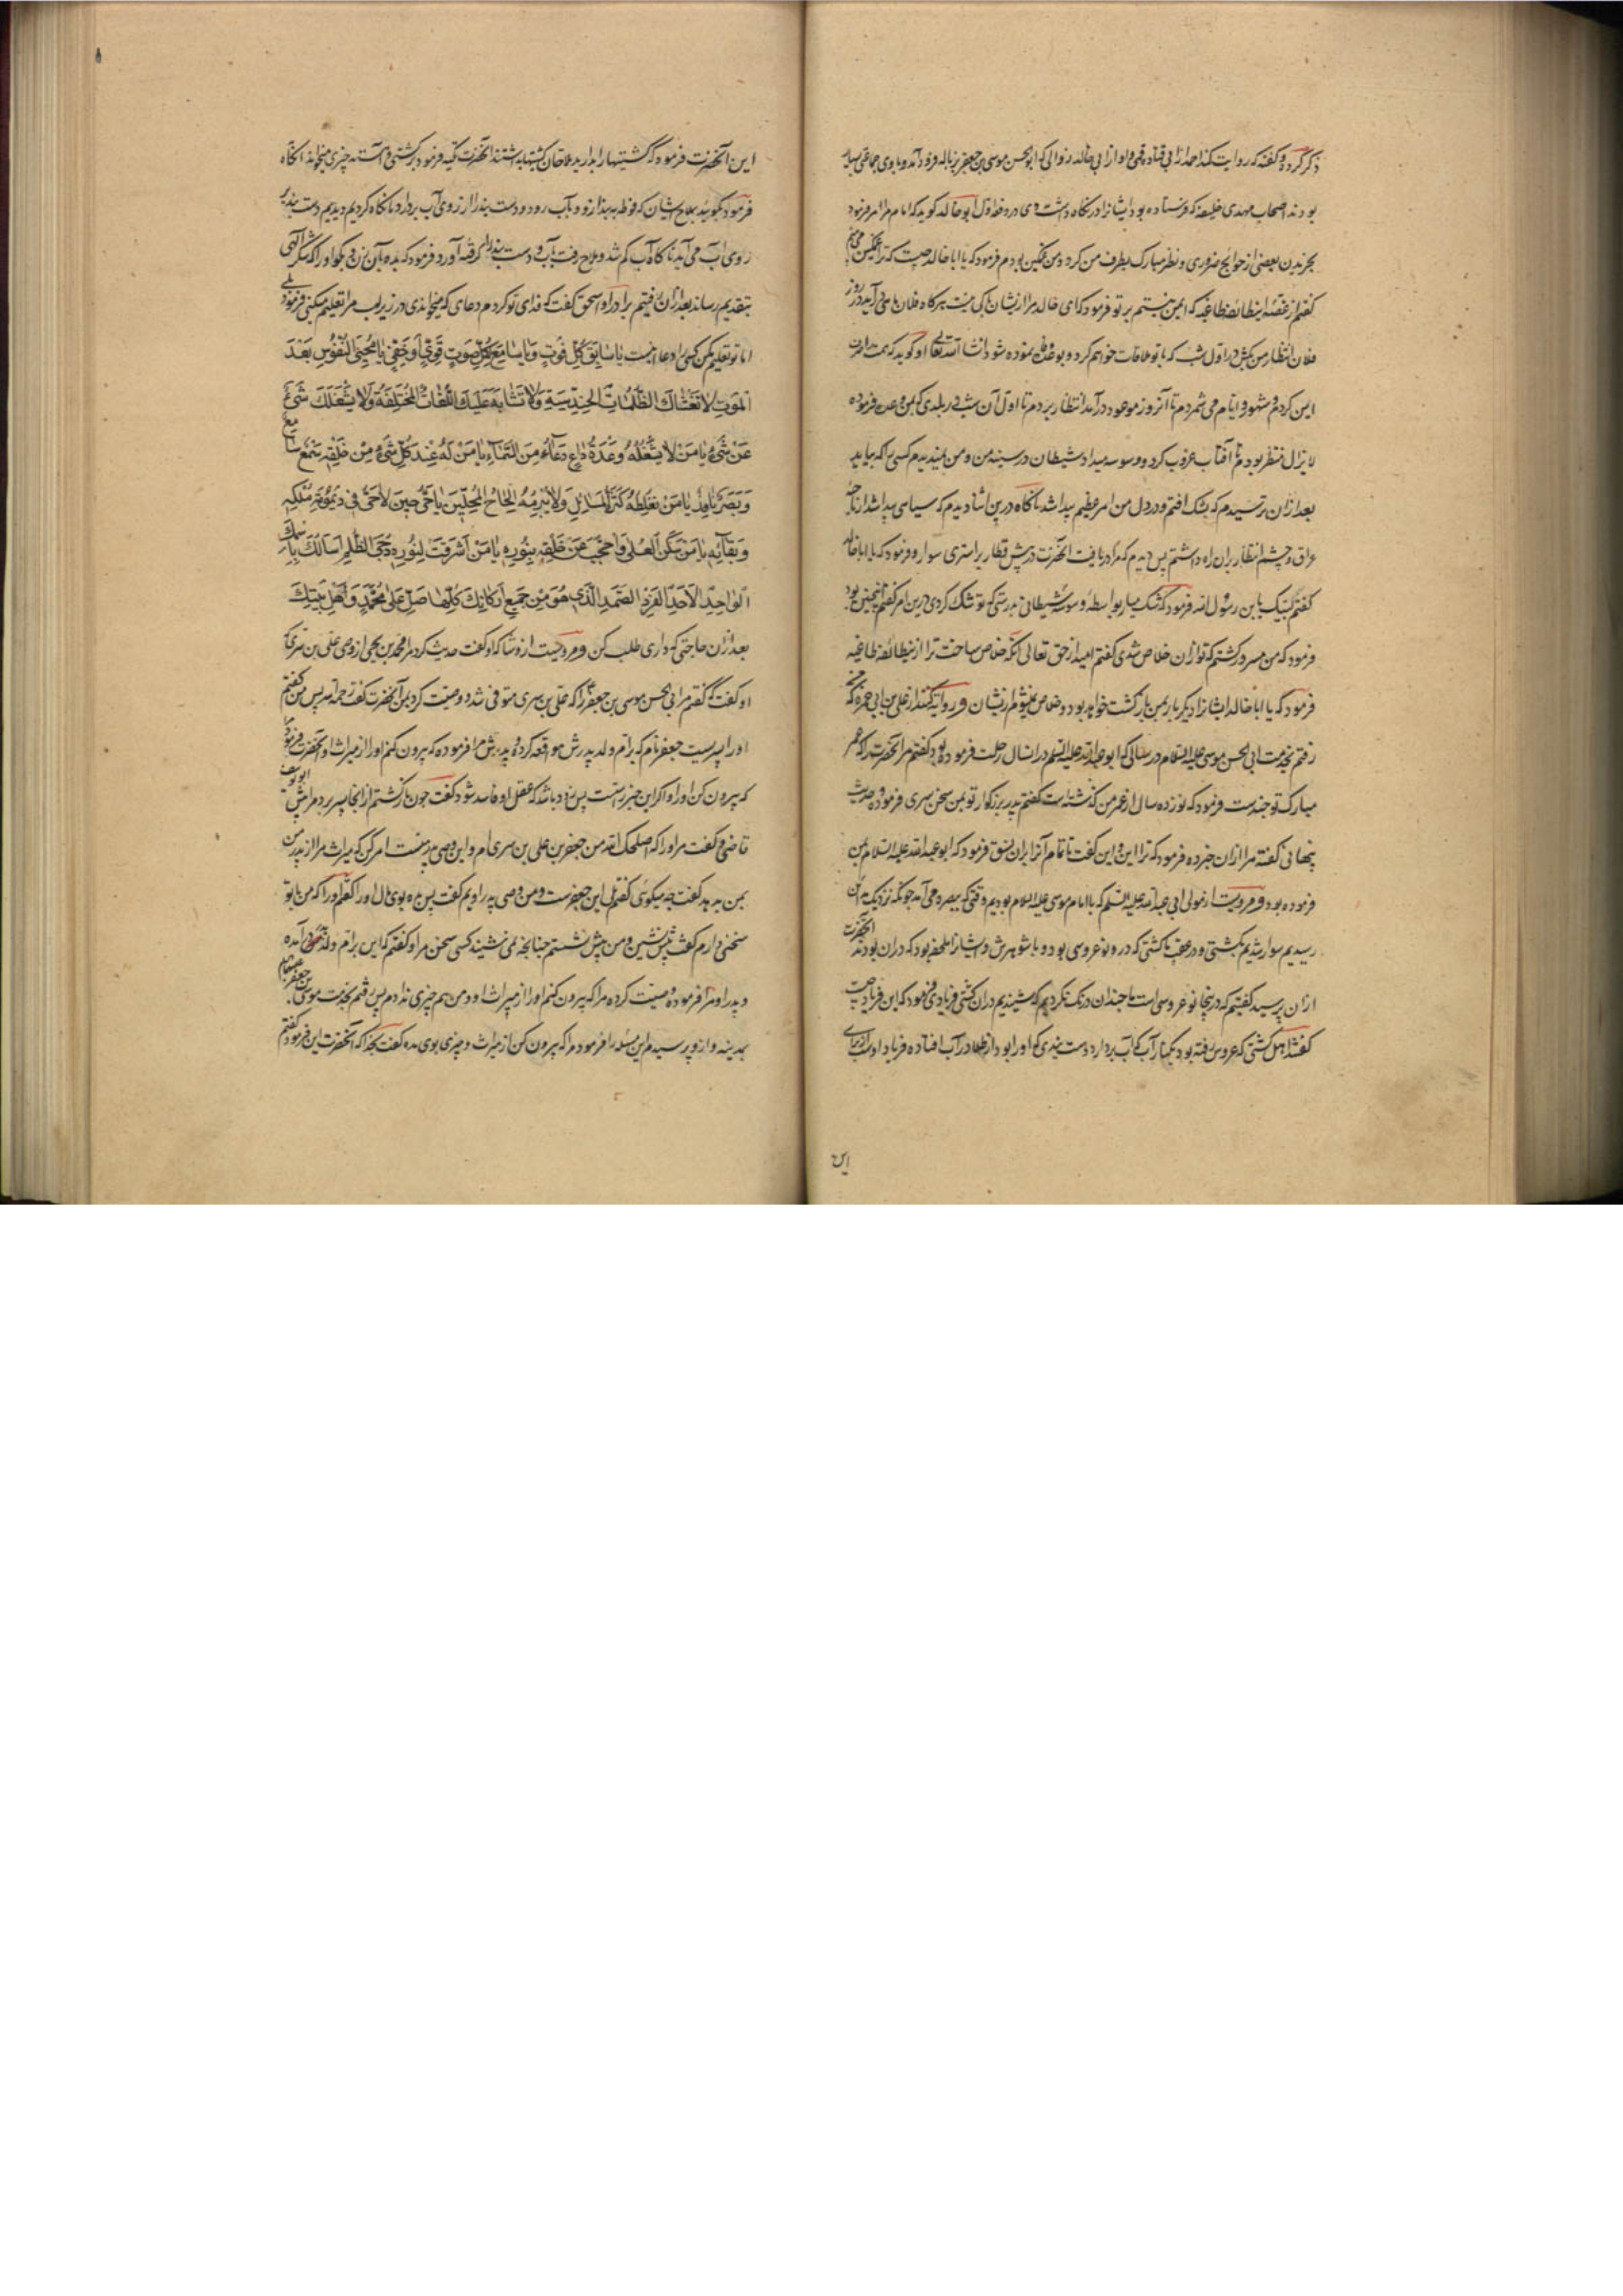 ذکر کرده و گفته که روایت کند احمد از ابی قتاده قمی و او از ابی خالد زوالی که ابوالحسن موسی بن جعفر بزباله فرود آمد و با وی جماعتی بسیار
بودند اصحاب مهدی خلیفه که فرستاده بود ایشانرا در نگاه داشت وی در دفعه اول ابو خالد گوید که امام مرا امر فرمود
بخریدن بعضی از حوایج ضروری و نظر مبارک بطرف من کرد و من غمگین بودم فرمود که یا ابا خالد چیست که ترا غمگین می‌بینم
گفتم از غصه اینطائفه طاغیه که ایمن نیستم بر تو فرمود که ای خالد مرا ازیشان باکی نیست هرگاه فلان ماه می‌آید در روز
فلان انتظار من بکش در اول شب که با تو ملاقات خواهم کرد و بوعده نموده شود انشا الله تعالی او گوید که همت
این کردم و شهور و ایام می‌شمردم تا آنروز موعود درآمد انتظار بردم تا اول آن شب در بلدی که بمن وعده فرموده
لایزال منتظر بودم تا آفتاب غروب کرد و وسوسه میداد شیطان در سینه من و من نمیدیدم کسی را که بیاید
بعد ازان ترسیدم که بشک افتم و در دل من امر عظیم پیدا شد ناگاه درین اثنا دیدم که سیاهی پیدا شد از ناحیه
عراق و چشم انتظار بران راه داشتم پس دیدم که مرا دریافت آنحضرت در پیش قطار بر استری سوار و فرمود که یا ابا خالد
گفتم لبیک یا بن رسول الله فرمود که شک میار بواسطه وسوسه شیطانی بدرستی که تو شک کردی درین امر گفتم اینچنین بود
فرمود که من مسرور گشتم که تو ازان خلاص شدی گفتم امید از حق تعالی آنکه خلاص ساخت ترا ازینطائفه طاغیه
فرمود که یا ابا خالد ایشانرا دیگر بار بمن بازگشت خواهد بود و خلاص نمیشوم ازیشان و روایت کنند از علی بن ابی حمزه که
رفتم بخدمت ابی الحسن موسی علیه السلام در سالی که ابو عبدالله علیه السلم در انسال رحلت فرموده بود گفتم مر آنحضرت را که عمر
مبارک تو چندست فرمود که نوزده سال از عمر من گذشته است گفتم پدر بزرگوار تو بمن سخن سری فرموده و حدیث
پنهانی گفته مرا ازان خبر ده فرمود که ترا این و این گفت تا تمام آنرا بران نسق فرمود که ابو عبدالله علیه السلام بمن
فرموده بود و مرویست از مولی ابی عبدالله علیه السلم که با امام موسی علیه السلام بودیم وقتی که ببصره می‌آمد چونکه نزدیک بمداین
رسیدیم سوار شدیم بکشتی و در عقب ما کشتی که درو نو عروسی بود و با شوهرش و ایشانرا بود که دران بودند آنحضرت
ازان پرسید گفتیم که درینجا نو عروسی است تا چندان درنگ نکردیم که شنیدیم دران کشتی فریادی فرمود که این فریاد چیست
گفتند اهل کشتی که عروس رفته بود بکنار آب که آب بردارد دست بندی که او را بود از طلا در آب افتاده فریاد او ست از برای
این
این آنحضرت فرمود که کشتیها را بدارید ملاحان کشتیها بداشتند آنحضرت تکیه فرمود بر کشتی و آهسته چیزی میخواند آنگاه
فرمود بگویید بملاح ایشان که فوطه ببندد و در آب رود و دست بند را از روی آب بردارد ما نگاه کردیم دیدیم دست بند بر
روی آب می‌آید ناگاه آب کم شد و ملاح رفت بآب و دست بند را گرفته آورد فرمود که بده بآن زن و بگو او را که شکر الهی
بتقدیم رساند بعد ازان رفتیم برادر او اسحق گفت که فدای تو گردم دعای که میخواندی در زیر لب مرا تعلیم میکنی فرمود بلی
اما تو تعلیم مکن کسی را و دعا اینست یَا سَابِقَ کُلِّ فَوْتٍ وَ یَا سَامِعَ کُلِّ صَوْتٍ قَوِیٍّ أَوْ خَفِیٍّ یَا مُحْیِیَ النُّفُوسِ بَعْدَ
الْمَوْتِ لَا تَغْشَاكَ الظُّلُمَاتُ الْحِنْدِسِیَّةُ وَلَا تَشَابَهُ عَلَیْكَ اللُّغَاتُ الْمُخْتَلِفَةُ وَلَا یَشْغَلُكَ شَیْءٌ
عَنْ شَیْءٍ یَا مَنْ لَا یَشْغَلُهُ دَعْوَةُ دَاعٍ دَعَاهُ مِنَ السَّمَاءِ یَا مَنْ لَهُ عِنْدَ کُلِّ شَیْءٍ مِنْ خَلْقِهِ سَمْعٌ سَامِعٌ
وَبَصَرٌ نَافِذٌ یَا مَنْ لَا تُغَلِّطُهُ کَثْرَةُ الْمَسَائِلِ وَلَا یُبْرِمُهُ إِلْحَاحُ الْمُلِحِّینَ یَا حَیُّ حِینَ لَا حَیَّ فِی دَیْمُومَةِ مُلْکِهِ
وَبَقَائِهِ یَا مَنْ سَکَنَ الْعُلَی وَاحْتَجَبَ عَنْ خَلْقِهِ بِنُورِهِ یَا مَنْ أَشْرَقَتْ لِنُورِهِ دُجَی الظُّلَمِ أَسْأَلُكَ بِاسْمِكَ
الْوَاحِدِ الْأَحَدِ الْفَرْدِ الصَّمَدِ الَّذِی هُوَ مِنْ جَمِیعِ أَرْکَانِكَ کُلِّهَا صَلِّ عَلَی مُحَمَّدٍ وَأَهْلِ بَیْتِكَ
بعد ازان حاجتی که داری طلب کن و مرویست از وشا که او گفت حدیث کرد مرا محمد بن یحیی از وصی علی بن سری که
او گفت که گفتم مر ابی الحسن موسی بن جعفر را که علی بن سری متوفی شد و وصیت کرد بمن آنحضرت گفت رحمه الله پس من گفتم
او را پسریست جعفر نام که بر ام ولد پدرش مواقعه کرده و پدرش مرا فرموده که بیرون کنم او را از میراث او آنحضرت فرمود
که بیرون کن او را و اگر این خبر راست پس زود باشد که عقل او فاسد شود گفت چون بازگشتم از انجا پسر برد مرا پیش ابو یوسف
قاضی و گفت مر او را که اصلحك الله من جعفر بن علی بن سری ام و این وصی پدر منست امر کن که میراث مرا از پدر من
بمن بدهد گفت چه میگوئی گفتم بلی این جعفرست و من وصی پدر اویم گفت پس بده بوی مال او را گفتم او را که من با تو
سخنی دارم گفت پیش نشین و من پیش نشستم چنانچه نمی‌شنید کسی سخن مرا و گفتم که این بر ام ولد پدر خود در آمده
و پدر او مرا فرموده و وصیت کرده مرا که بیرون کنم او را از میراث او و من هم چیزی ندادم پس رفتم بخدمت موسی بن جعفر علیهما
بمدینه و ازو پرسیدم این مسئله را فرمود مرا که بیرون کن از میراث و چیزی بوی مده گفت بخدا که آنحضرت این فرمود گفتم